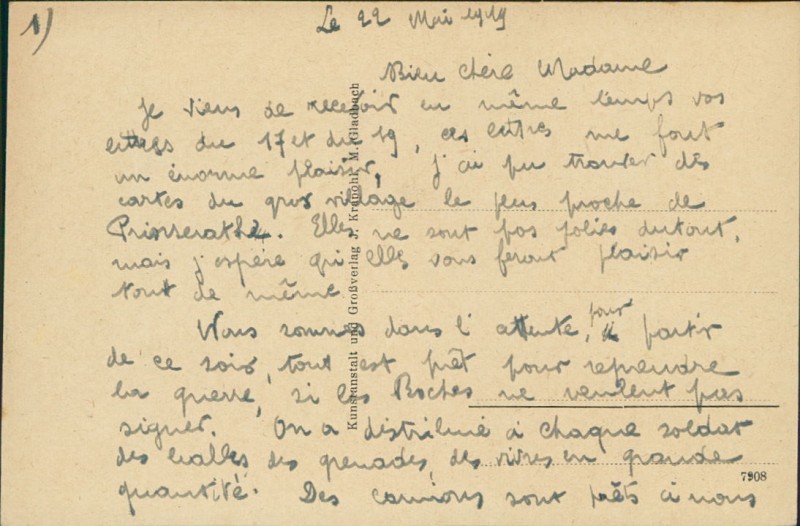 1)
Le 22 Mai 1919
Bien chère Madame
Je viens de recevoir en même temps vos
lettres du 17 et du 19, ces lettres me font
un énorme plaisir, j'ai pu trouver des
cartes du gros village le plus proche de
Elles ne sont pas jolies du tout,
mais j'espère qu'elles vous feront plaisir
tout de même
Nous sommes dans l'attente, pour partir
de ce soir, tout est prêt pour reprendre
la guerre, si les Boches ne veulent pas
signer. On a distribué à chaque soldat
des balles des grenades, des vivres en grande
quantité. Des camions sont prêts à nous
Kunstanstalt und Großverlag J. Krapohl, M.-Gladbach
7908